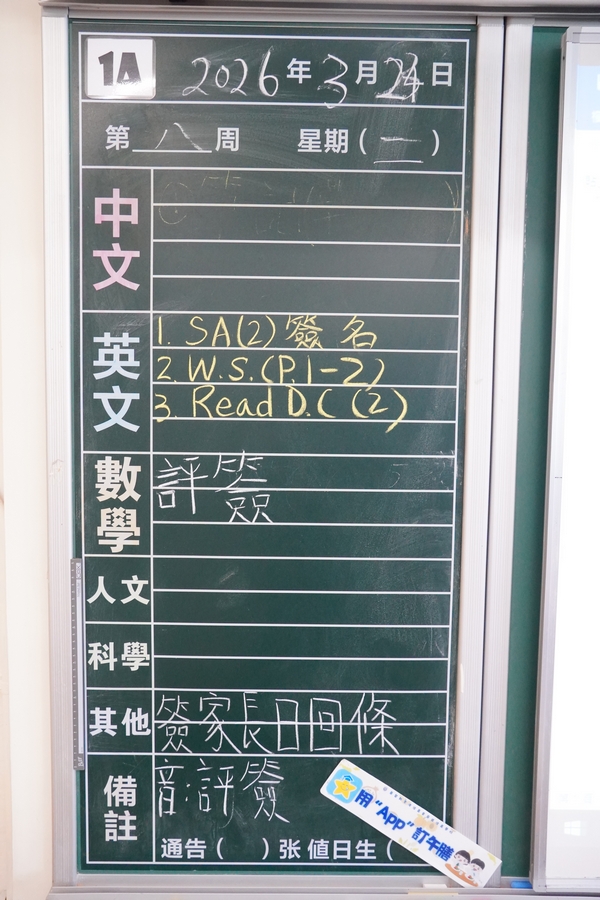 1A 2026年3月24日
第八周 星期(二)
中文
英文
1. SA(2) 簽名
2. W.S.(P.1-2)
3. Read D.C (2)
數學
評簽
人文
科學
其他
簽家長日回條
備註
音:評簽
通告( )张 值日生(
用“App”訂午膳